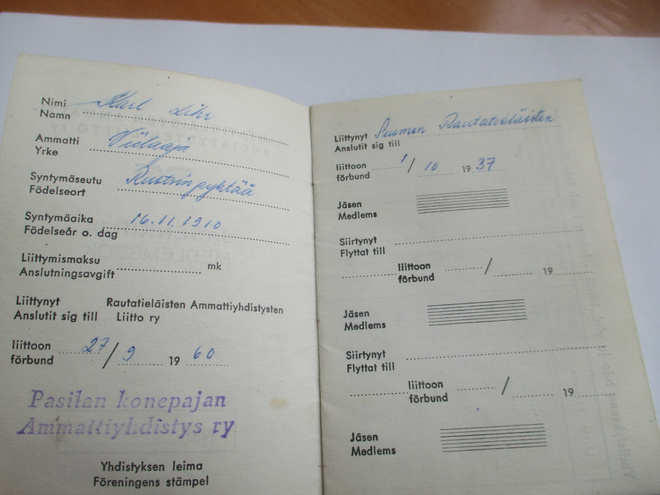 Nimi
Namn Karl Lihr
Ammatti
Yrke Viilaaja
Syntymäseutu
Födelseort
Syntymäaika 16.11.1910
Födelseår o. dag
Liittymismaksu mk
Anslutningsavgift
Liittynyt Rautatieläisten Ammattiyhdistysten
Anslutit sig till Liitto ry
liittoon 27/9 1960
förbund
Pasilan konepajan
Ammattiyhdistys ry
Yhdistyksen leima
Föreningens stämpel
Liittynyt Suomen Rautatieläisten
Anslutit sig till
liittoon 1/10 1937
förbund
Jäsen
Medlems
Siirtynyt
Flyttat till
liittoon / 19
förbund
Jäsen
Medlems
Siirtynyt
Flyttat till
liittoon / 19
förbund
Jäsen
Medlems